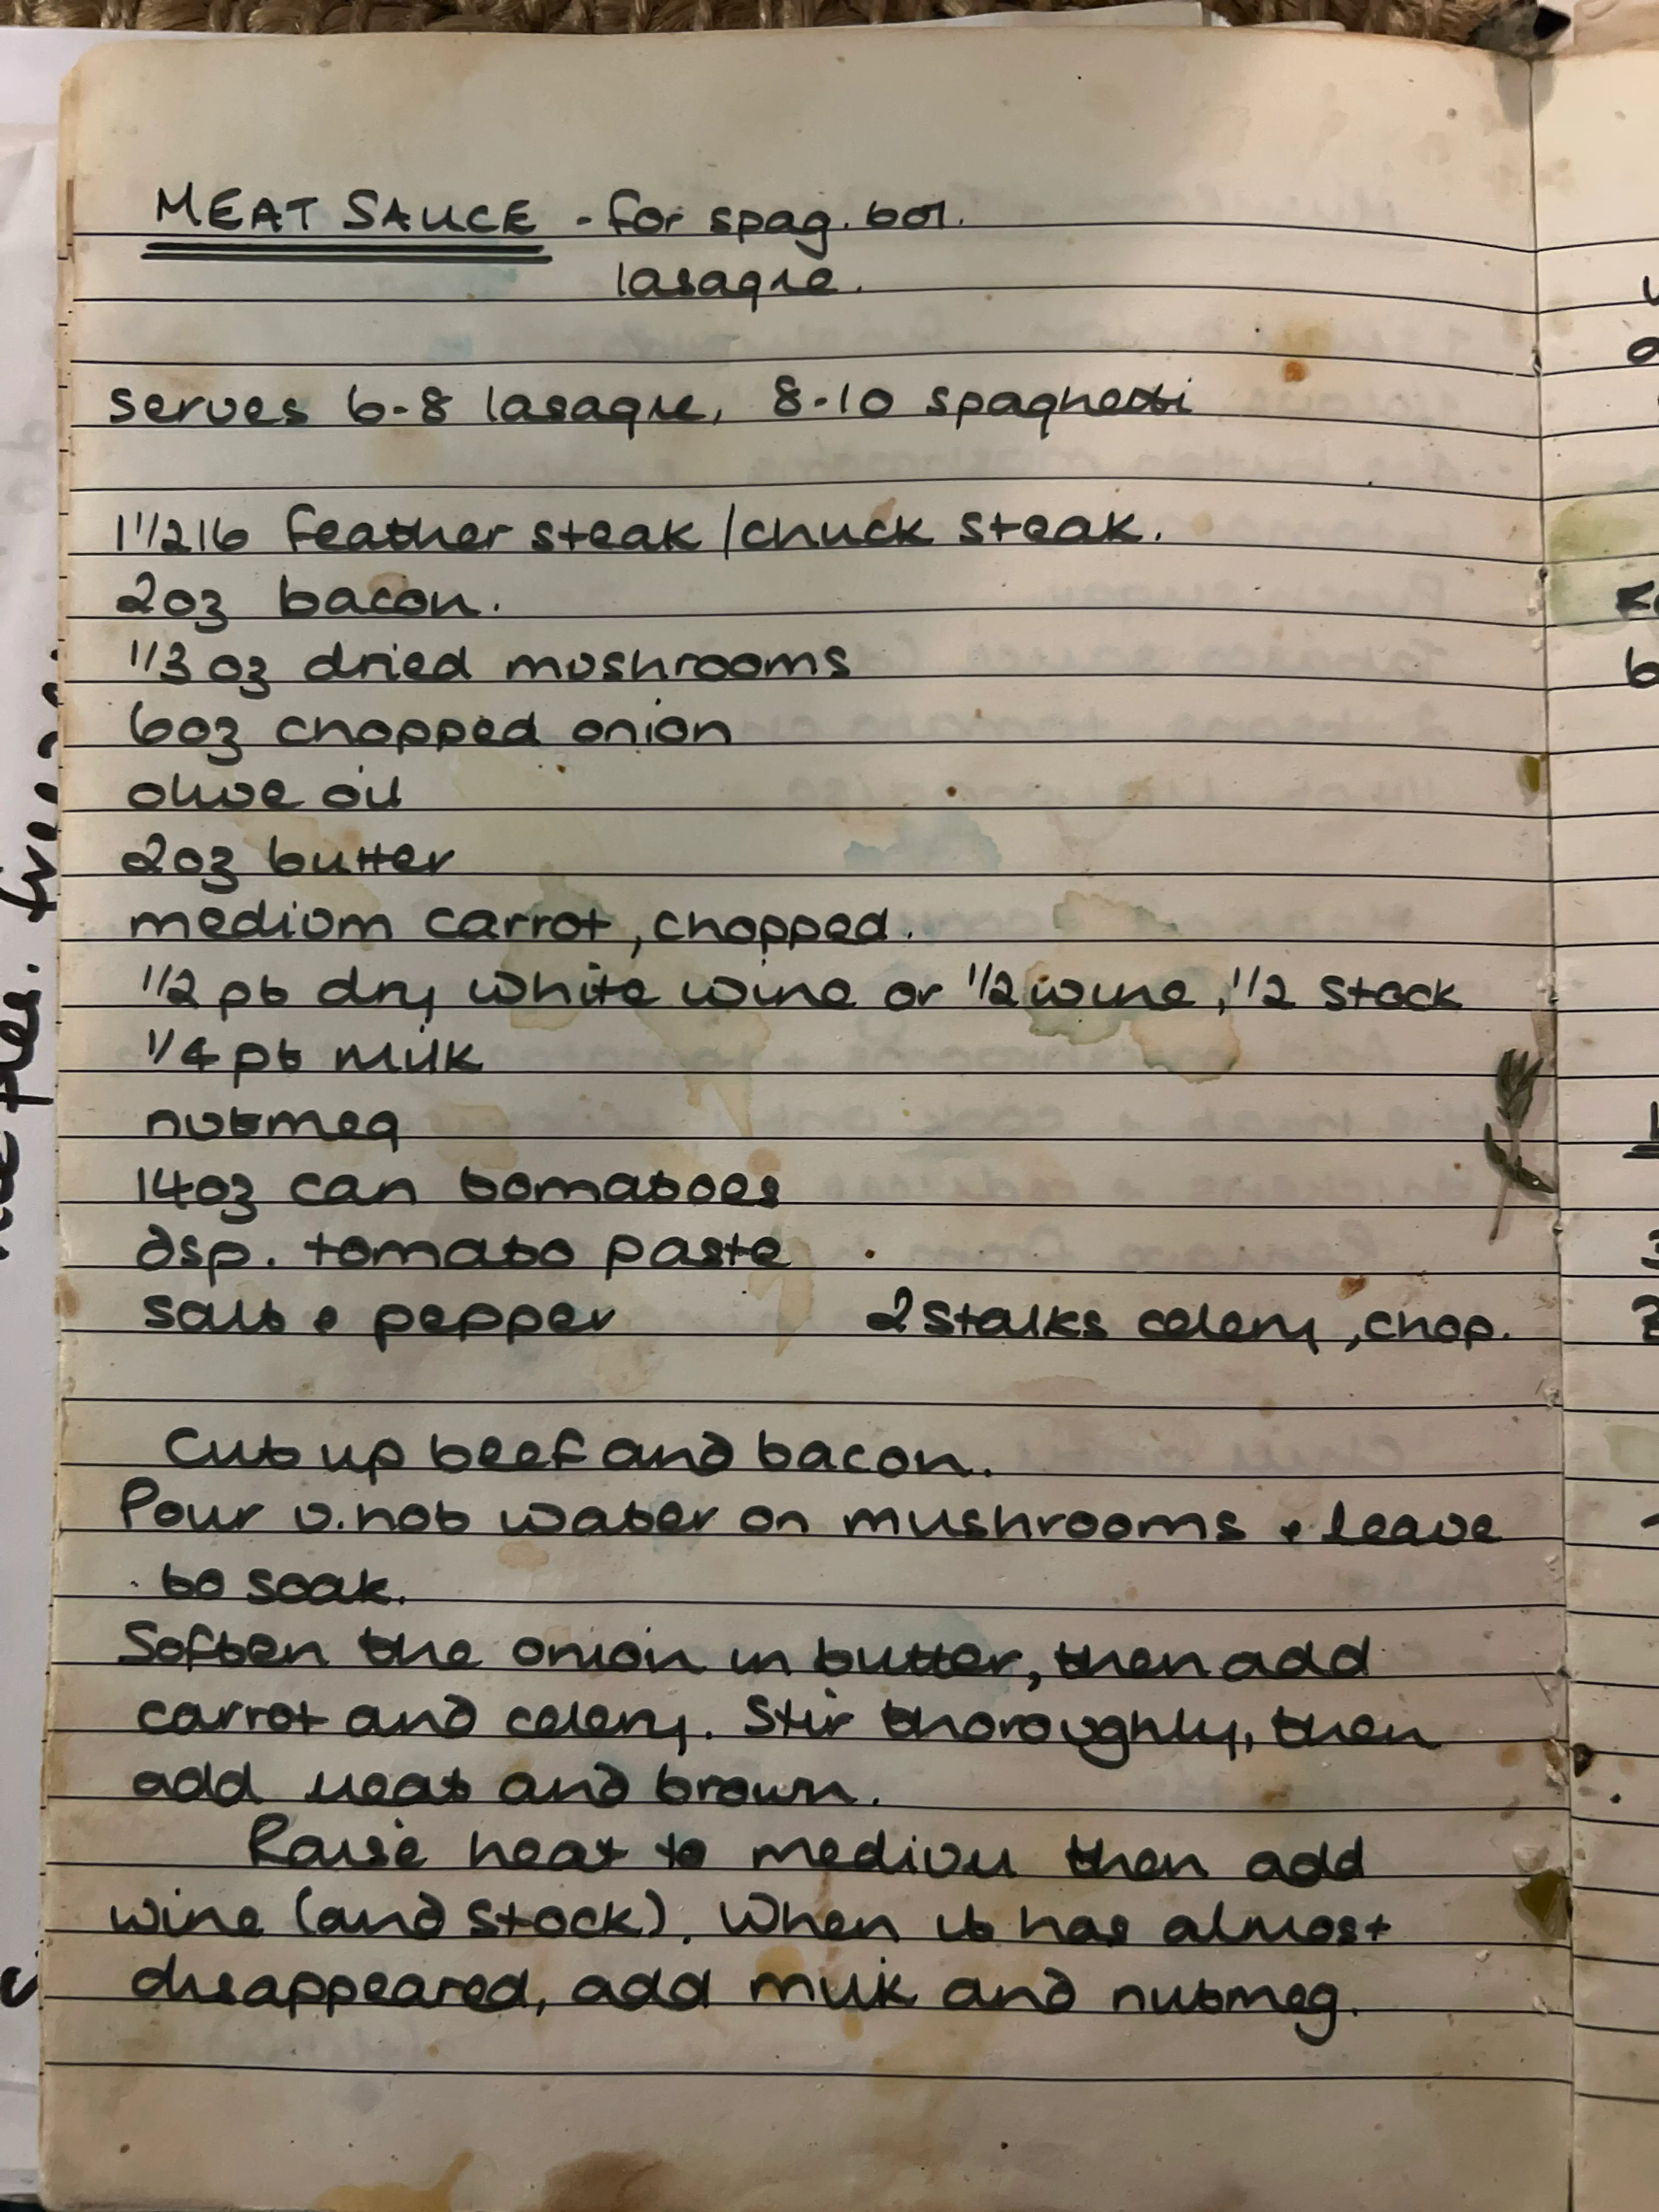 MEAT SAUCE - for spag. bol.
lasagne.
serves 6-8 lasagne, 8-10 spaghetti
1 1/2 lb feather steak / chuck steak.
2oz bacon.
1/3 oz dried mushrooms
6oz chopped onion
olive oil
2oz butter
medium carrot, chopped.
1/2 pt dry white wine or 1/2 wine, 1/2 stock
1/4 pt milk
nutmeg
14oz can tomatoes
dsp. tomato paste
salt & pepper 2 stalks celery, chop.
Cut up beef and bacon.
Pour v. hot water on mushrooms & leave
to soak.
Soften the onion in butter, then add
carrot and celery. Stir thoroughly, then
add meat and brown.
Raise heat to medium then add
wine (and stock). When it has almost
disappeared, add milk and nutmeg.